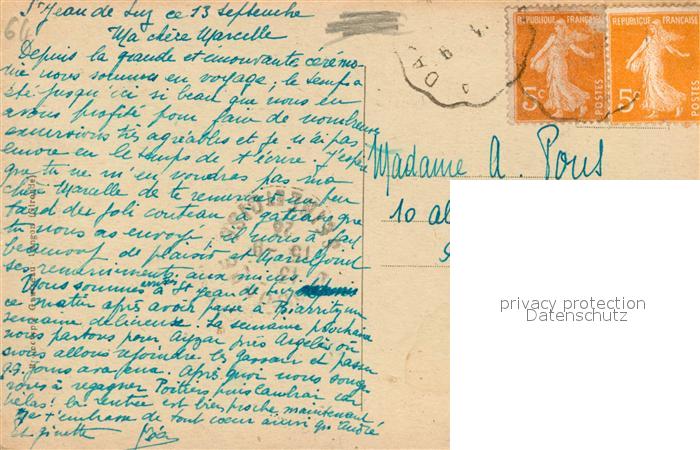 St Jean de Luz ce 13 Septembre
64
Ma chère Marcelle
Depuis la grande et émouvante cérémo-
nie nous sommes en voyage; le temps a
été jusqu'ici si beau que nous en
avons profité pour faire de nombreuses
excursions très agréables et je n'ai pas
encore eu le temps de t'écrire. J'espère
que tu ne m'en voudras pas ma
chère Marcelle de te remercier un peu
tard du joli couteau à gâteaux que
tu nous as envoyé il nous a fait
beaucoup de plaisir et Marcel joint
ses remerciements aux miens.
Nous sommes à St Jean de Luz depuis
ce matin après avoir passé à Biarritz une
semaine délicieuse. La semaine prochaine
nous partons pour Ayzac près Argelès où
nous allons rejoindre les et passer
jours avec eux. Après quoi nous songe-
rons à regagner Poitiers puis car
hélas! la rentrée est bien proche maintenant
Je t'embrasse de tout cœur ainsi que André
et Ginette
Madame A. Pons
10 al
DAX
REPUBLIQUE FRANÇAISE
5c
POSTES
REPUBLIQUE FRANÇAISE
5c
POSTES
privacy protection
Datenschutz